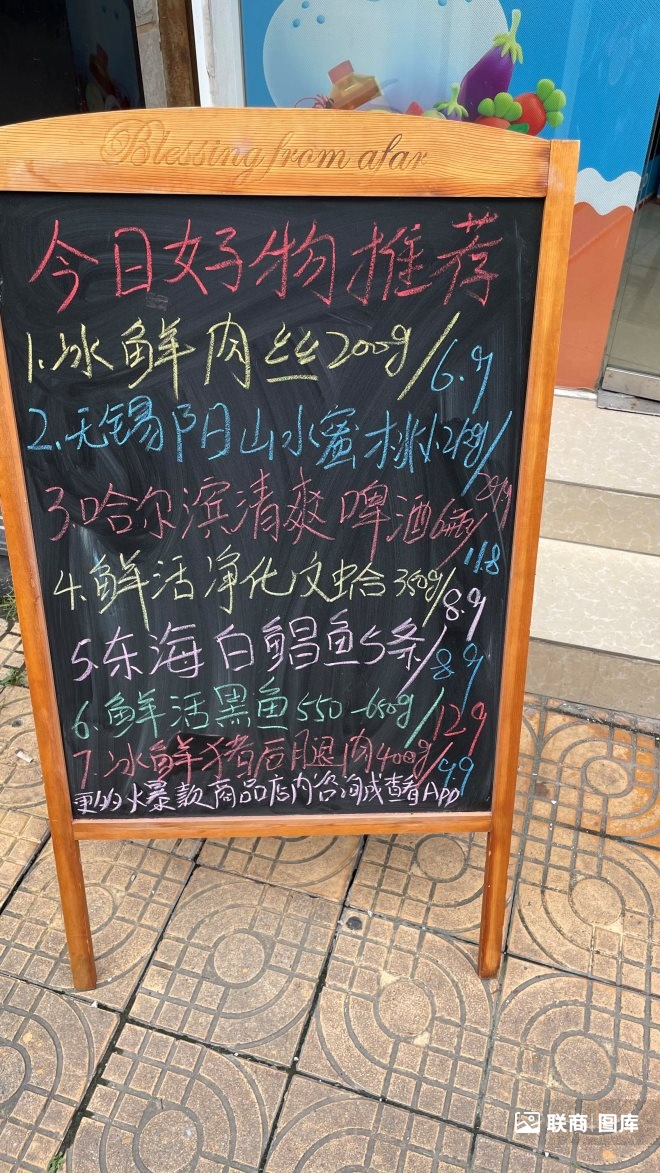 Blessing from afar
今日好物推荐
1.冰鲜肉丝200g/6.9
2.无锡阳山水蜜桃小2kg/
3哈尔滨清爽啤酒6瓶/11.8
4.鲜活净化文蛤350g/8.9
5.东海白鲳鱼5条/8.9
6.鲜活黑鱼550-650g/12.9
7.冰鲜猪后腿肉400g/9.9
更多火爆款商品店内咨询或查看App
联商 图库